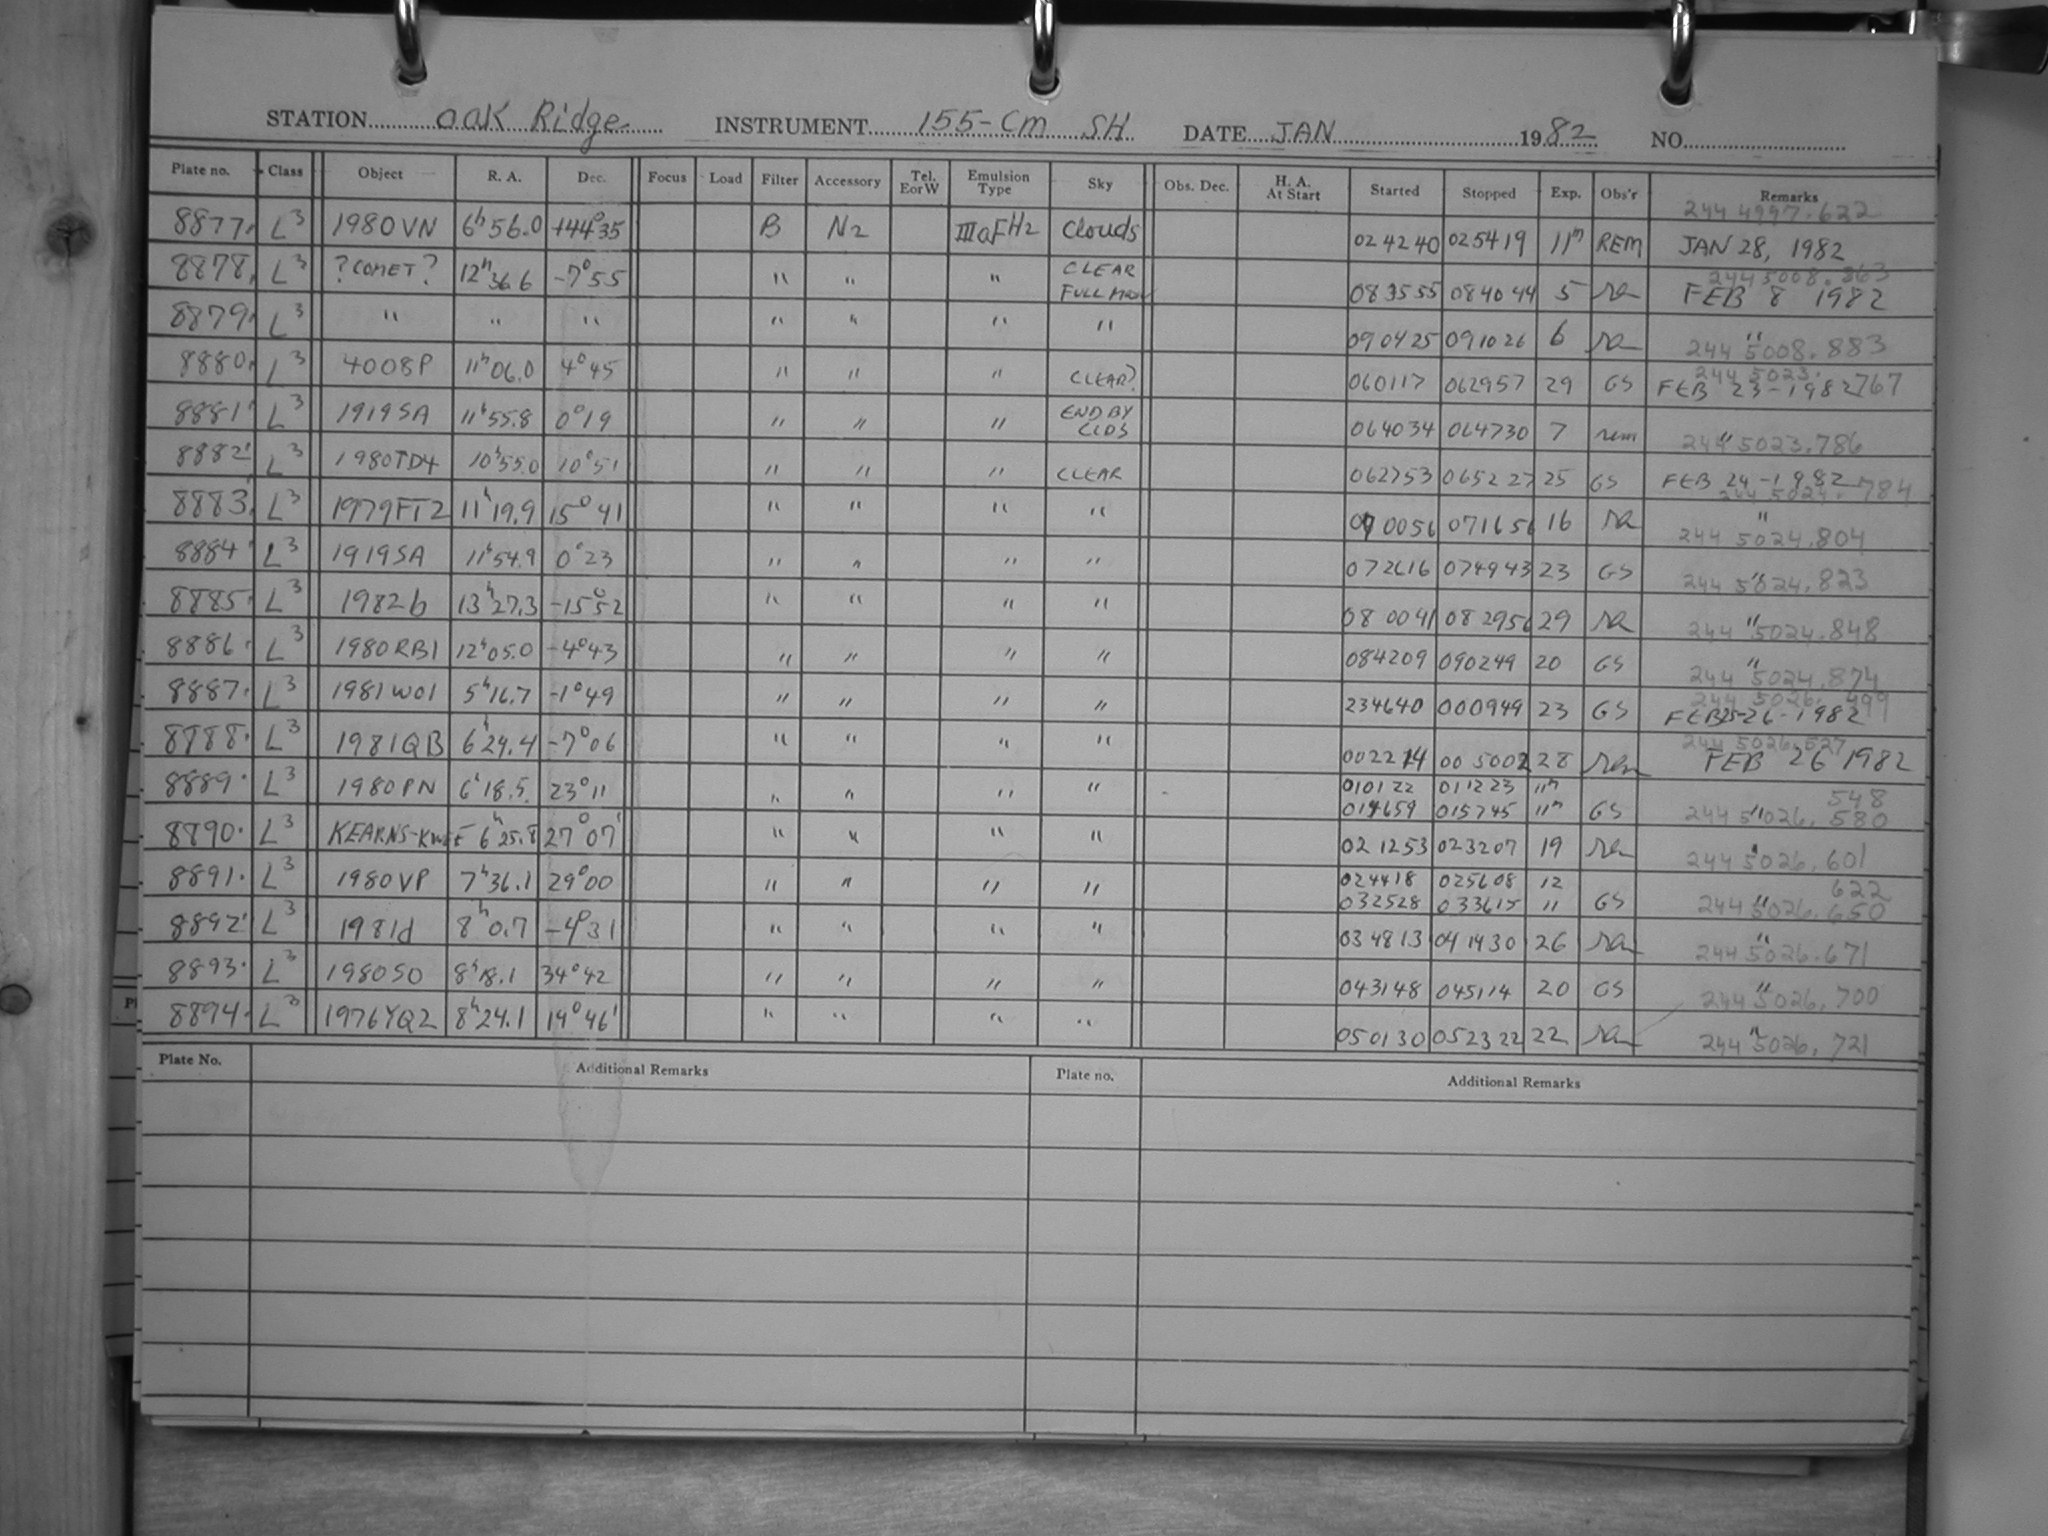 STATION Oak Ridge INSTRUMENT 155-cm SH DATE JAN 1982 NO.
Plate no. Class Object R. A. Dec. Focus Load Filter Accessory Tel. E or W Emulsion Type Sky Obs. Dec. H. A. At Start Started Stopped Exp. Obs'r Remarks
244 4997.622
8877 L3 1980VN 6h56.0 +44°35 B N2 IIIaFH2 Clouds 024240 025419 11m REM JAN 28, 1982
8878 L3 ?COMET? 12h36.6 -7°55 " " " CLEAR FULL MOON 083555 084044 5 rem 244 5008.863 FEB 8 1982
8879 L3 " " " " " " " 090425 091026 6 rem " 244 5008.883
8880 L3 4008P 11h06.0 4°45 " " " CLEAR? 060117 062957 29 GS 244 5023.767 FEB 23-1982
8881 L3 1919SA 11h55.8 0°19 " " " END BY CLDS 064034 064730 7 rem " 244 5023.786
8882 L3 1980TD4 10h55.0 10°51 " " " CLEAR 062753 065227 25 GS FEB 24-1982 244 5024.784
8883 L3 1979FT2 11h19.9 15°41 " " " " 070056 071656 16 rem " 244 5024.804
8884 L3 1919SA 11h54.9 0°23 " " " " 072616 074943 23 GS " 244 5024.823
8885 L3 1982b 13h27.3 -15°52 " " " " 080041 082956 29 rem " 244 5024.848
8886 L3 1980RB1 12h05.0 -4°43 " " " " 084209 090249 20 GS " 244 5024.874
8887 L3 1981WO1 5h16.7 -1°49 " " " " 234640 000949 23 GS 244 5026.499 FEB25-26-1982
8888 L3 1981QB 6h24.4 -7°06 " " " " 002214 005002 28 rem 244 5026.527 FEB 26 1982
8889 L3 1980PN 6h18.5 23°11 " " " " 010122 011223 11m 548
014659 015745 11m GS " 244 5026.580
8890 L3 KEARNS-KWEE 6h25.8 27°07' " " " " 021253 023207 19 rem " 244 5026.601
8891 L3 1980VP 7h36.1 29°00 " " " " 024418 025608 12 622
032528 033615 11 GS " 244 5026.650
8892 L3 1981d 8h0.7 -4°31 " " " " 034813 041430 26 rem " 244 5026.671
8893 L3 1980SO 8h18.1 34°42 " " " " 043148 045114 20 GS " 244 5026.700
8894 L3 1976YQ2 8h24.1 19°46' " " " " 050130 052322 22 rem " 244 5026.721
Plate No. Additional Remarks Plate no. Additional Remarks